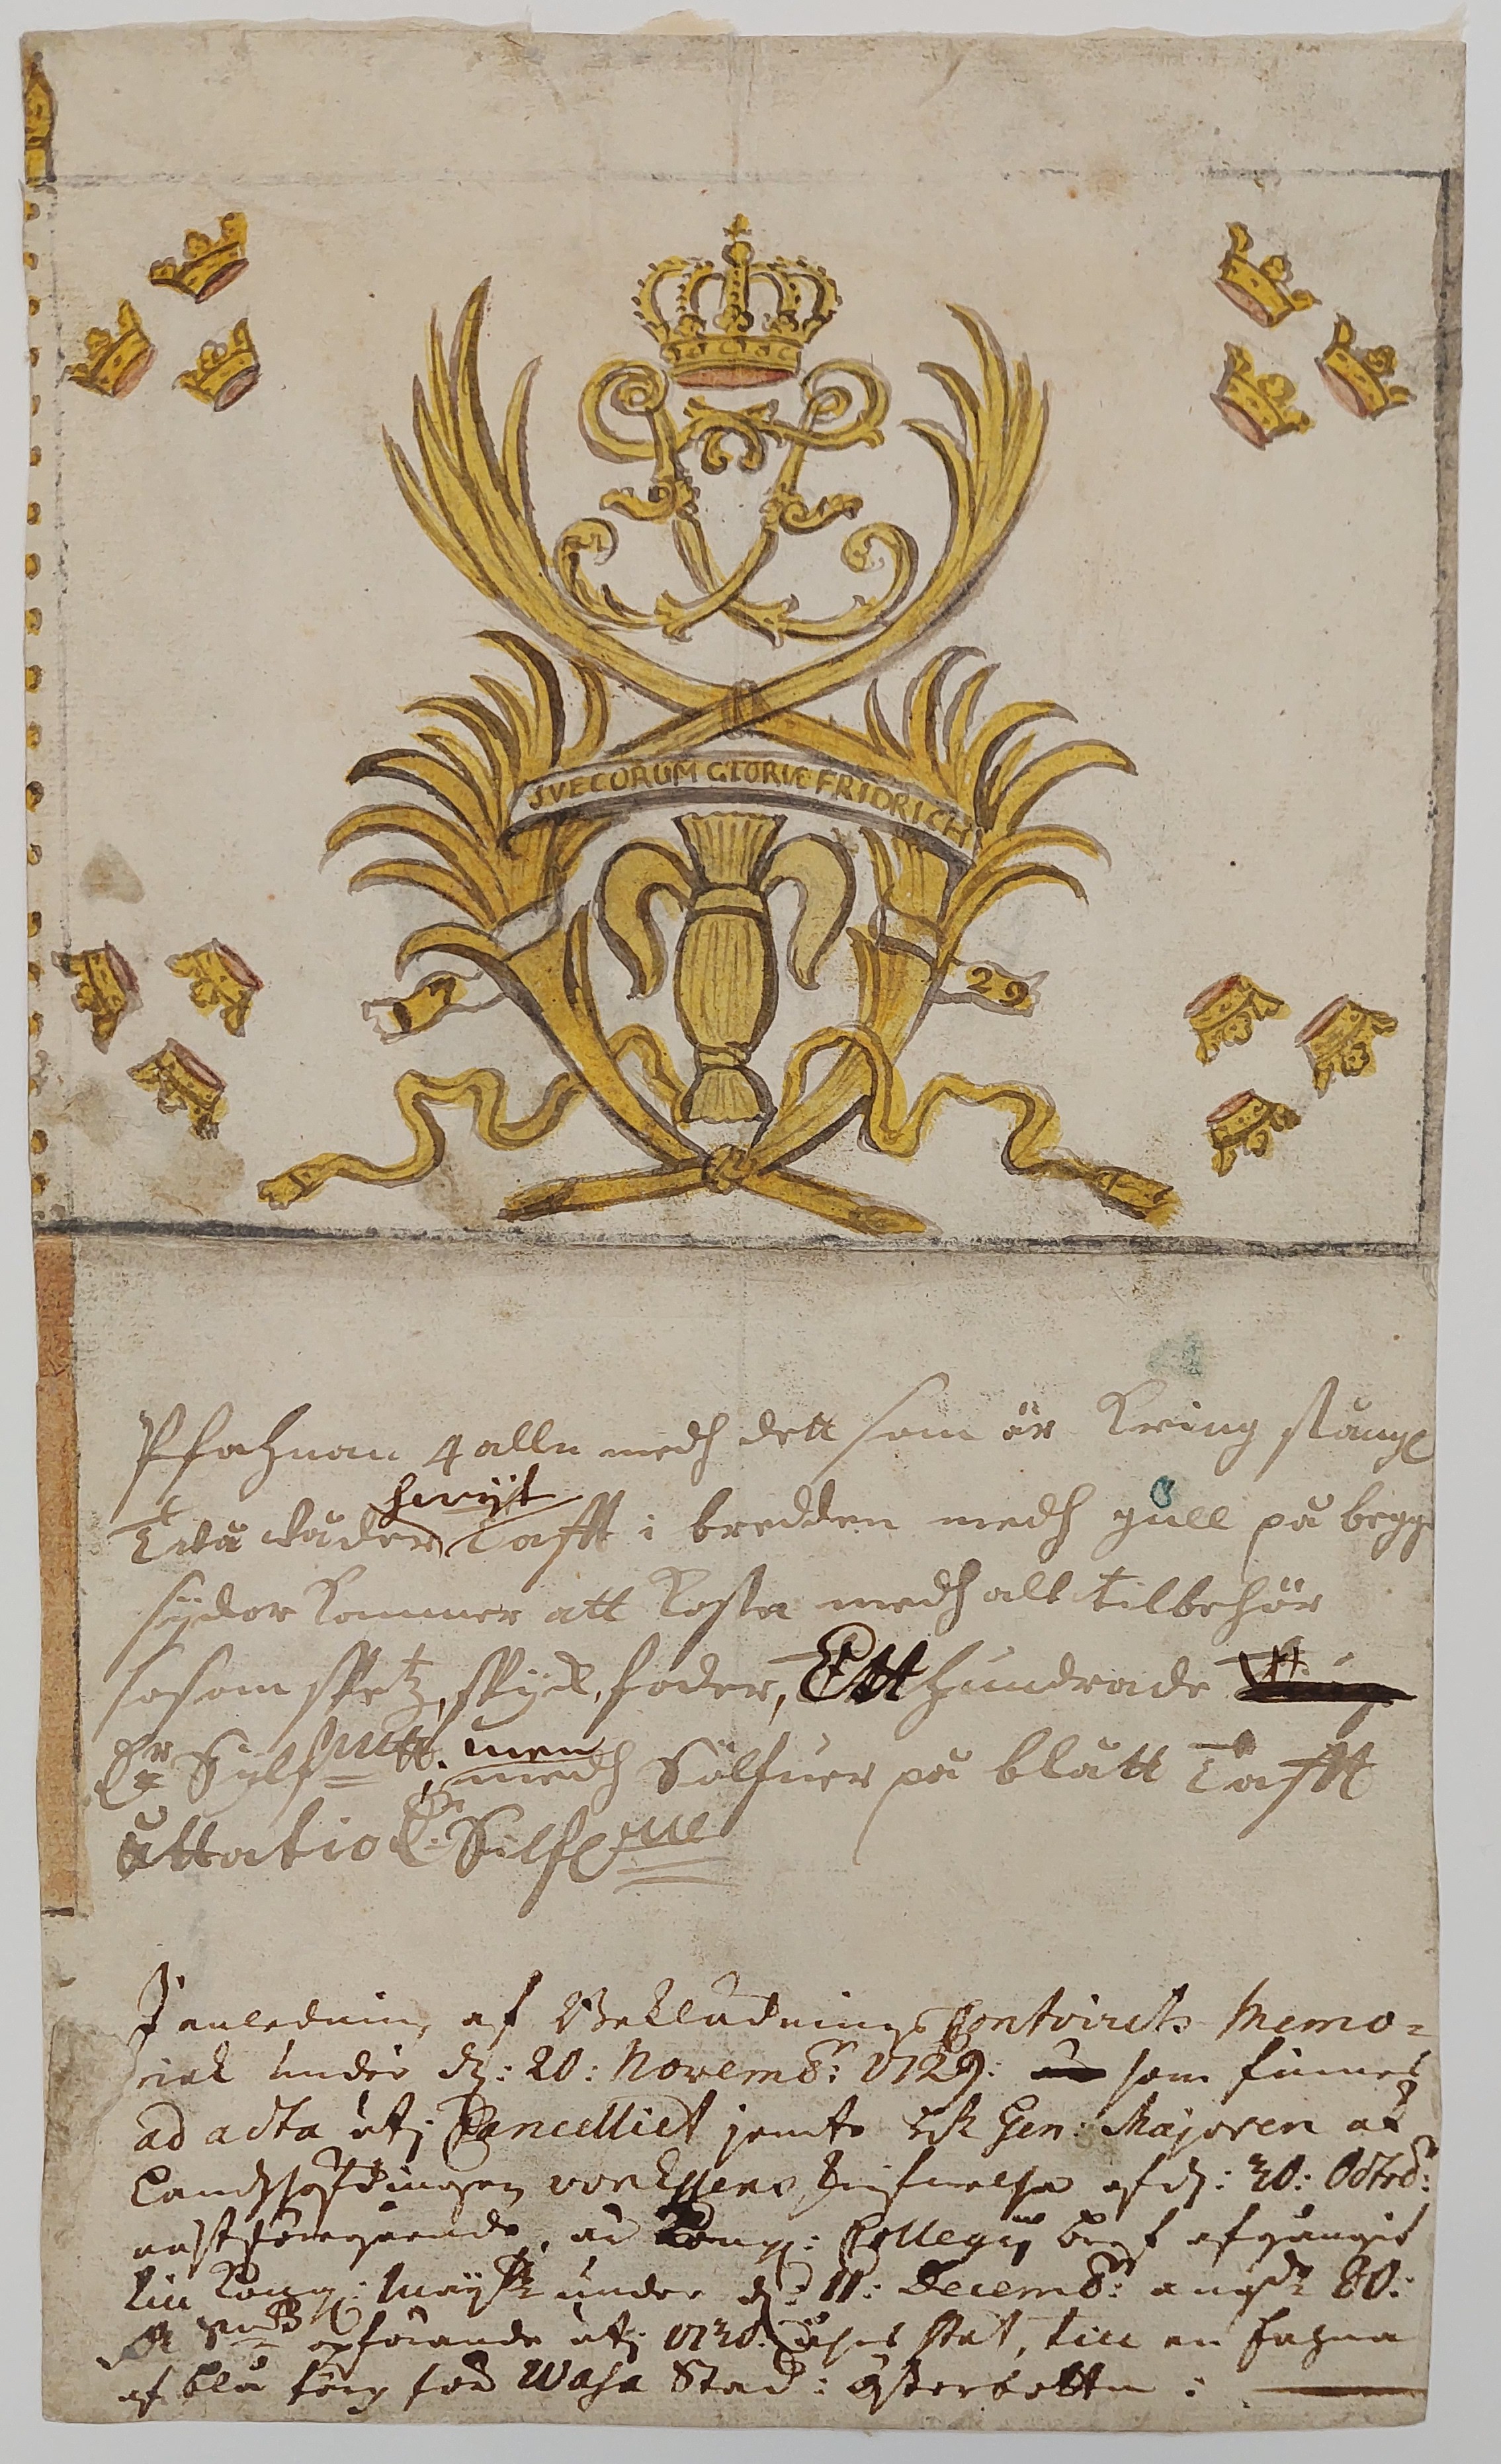 SVECORUM GLORIÆ FRIDRICH
17
29
Pfahnan 4 alln medh dett som är kring stång
hwijt
Twå wåder Tafft i bredden medh gull på begge
sydor kommer att kosta medh alt tilbehör
såsom spetz, foder, Ett hundrade
men
Dr Sylf mtt. medh Sölfuer på blått Tafft
åttatio Dr Silf mtt
I anledning af Beklädnings Contoirets Memo=
rial under d: 20: Novemb: 1729: som finnes
ad acta uti Cancelliet jemte Gen: Majoren
Landshöfdingen von Essens af d: 20: Octob:
nästföregående, är Kongl: Collegii bref afgångit
till Kongl: Maytt under d: 11: Decemb: ang 80:
opförande uti 1730: åhrs stat, till en fahna
af blå färg för Wasa Stad: Österbottn: